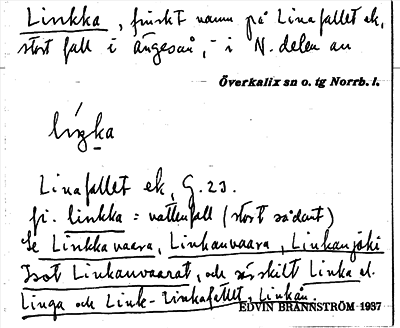 Linkka, finskt namn på Linafallet ek,
stort fall i Ängesån, - i N. delen av
Överkalix sn o. tg Norrb. l.
Linafallet ek, G. 23.
fi. linkka = vattenfall (stort sådant)
Se Linkkavaara, Linkanvaara, Linkanjoki
Isot Linkanvaarat, och särskilt Linka el.
Linga och Link- Linkafallet, Linkån.
EDVIN BRÄNNSTRÖM 1937